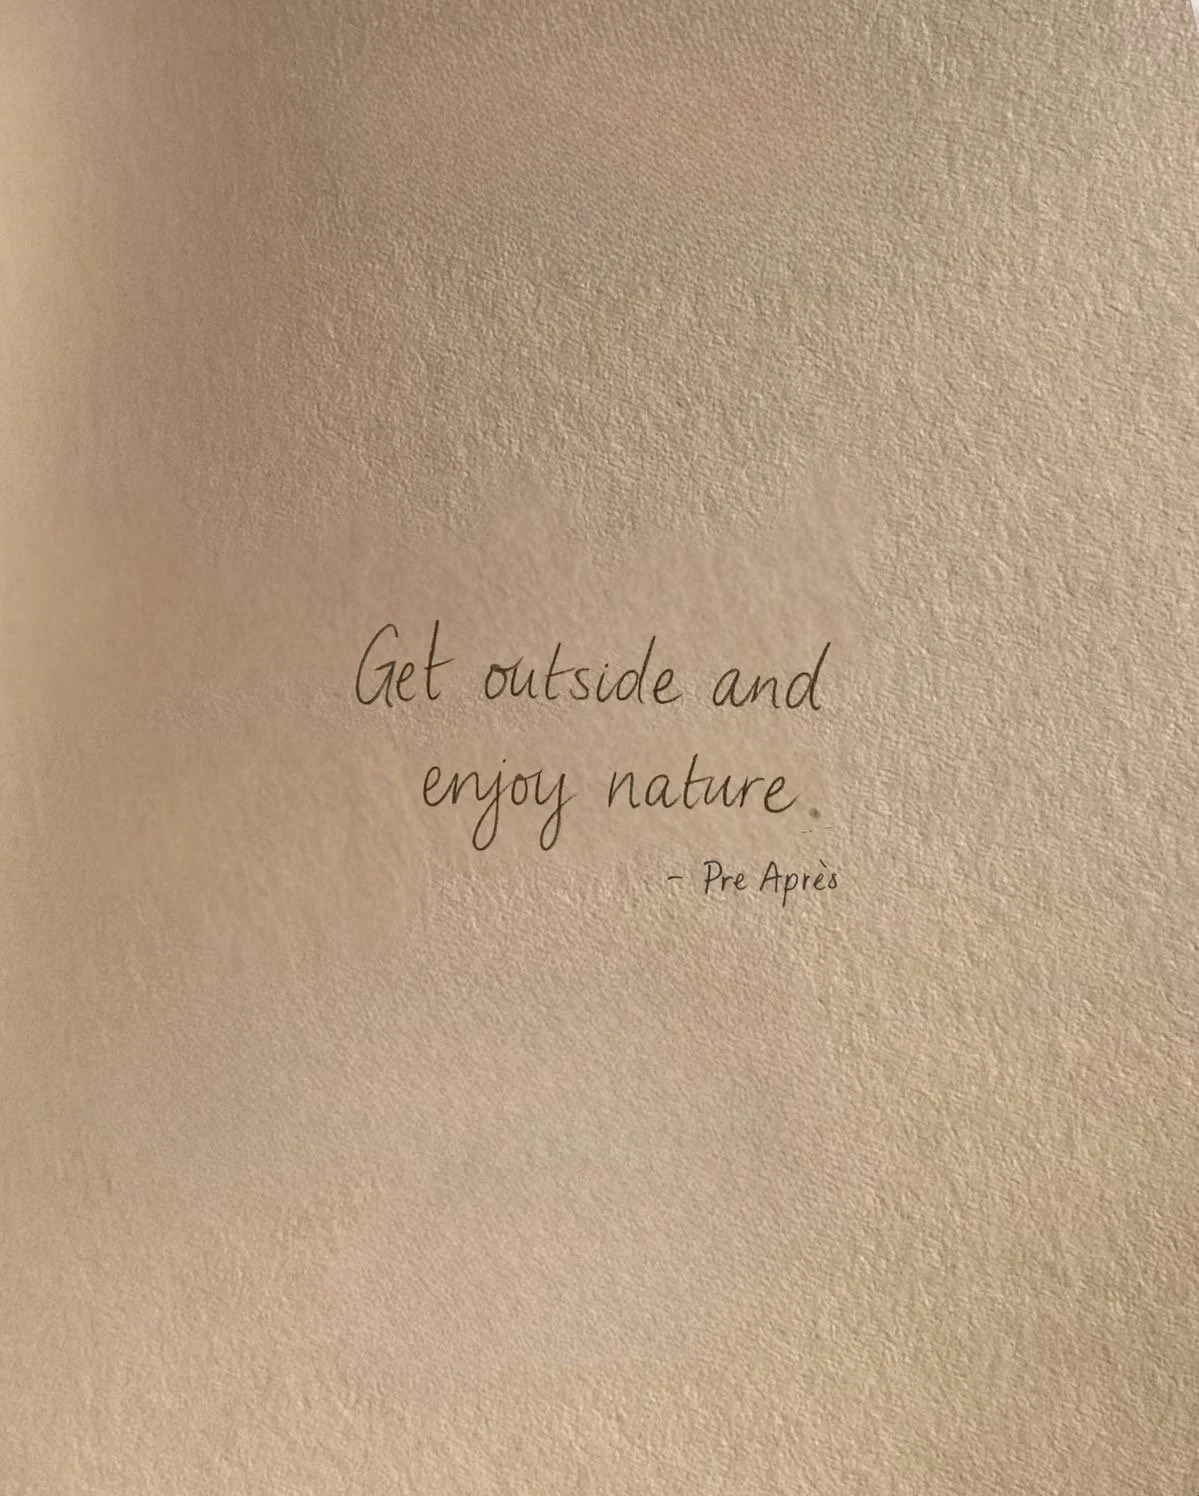 Get outside and
enjoy nature.
- Pre Après